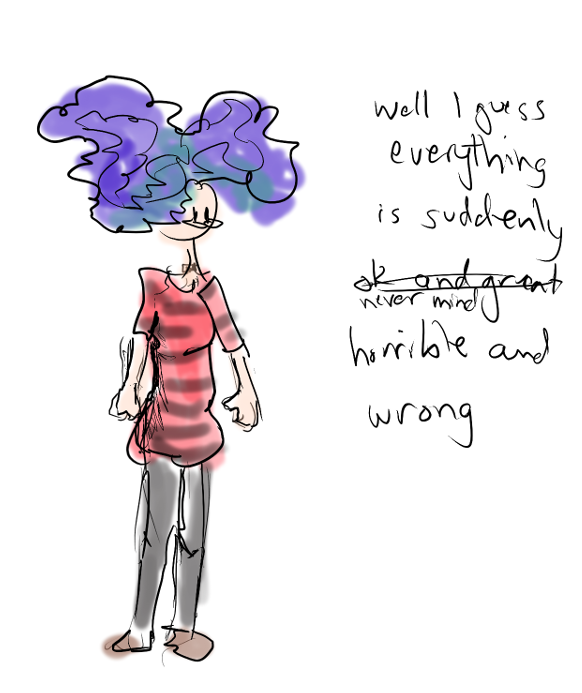 well I guess
everything
is suddenly
ok and great
never mind
horrible and
wrong